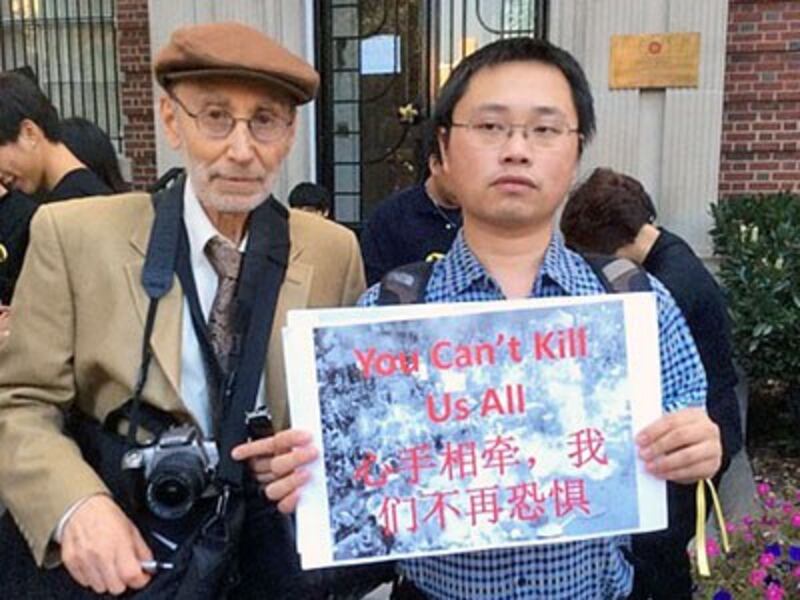 You Can't Kill
Us All
心手相牵，我
们不再恐惧